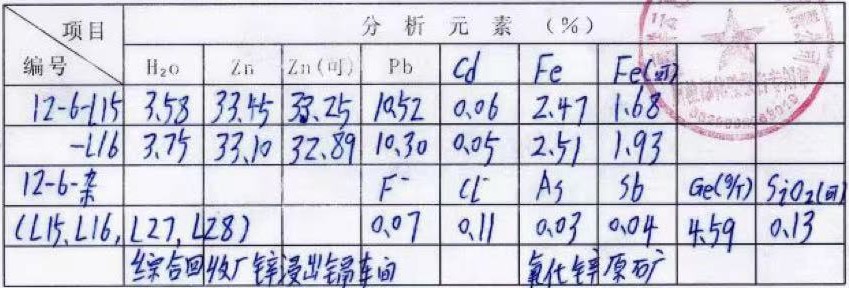 项目 分析元素（%）
编号 H₂O Zn Zn(可) Pb Cd Fe Fe(可)
12-6-L15 3.58 33.45 33.25 10.52 0.06 2.47 1.68
-L16 3.75 33.10 32.89 10.30 0.05 2.51 1.93
12-6-杂 F⁻ Cl⁻ As Sb Ge(g/T) SiO₂(可)
(L15、L16、L27、L28) 0.07 0.11 0.03 0.04 4.59 0.13
综合回收厂锌浸出镉车间 氧化锌原石广